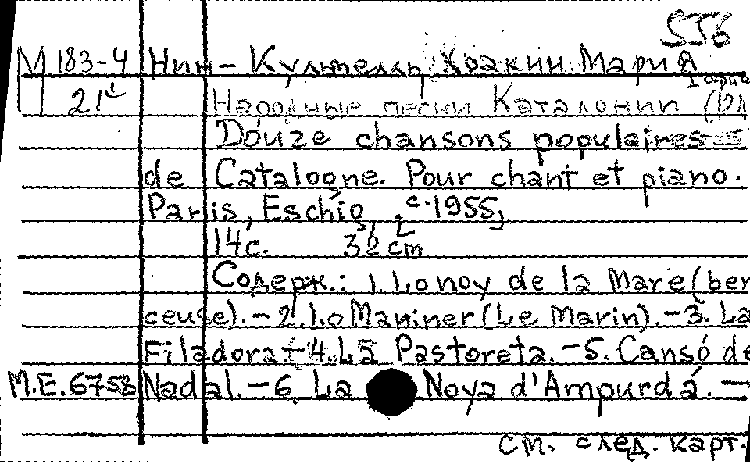 556
М 183-4 Нин-Кульмелль, Хоакин Мария
21
Народные песни Каталонии
Douze chansons populaires
de Catalogne. Pour chant et piano.
Paris, Eschig, c. 1955,
14с. 32 cm
Содерж.: 1. Lo noy de la Mare (ber
ceuse). - 2. Lo Mariner (Le Marin). - 3. La
Filadora - 4. La Pastoreta. - 5. Cansó de
M.E.6758 Nadal. - 6. La Noya d'Ampurdá. -
см. след. карт.